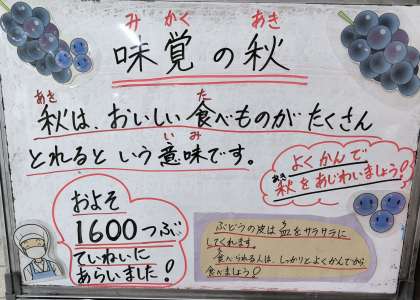 みかく あき
味覚の秋
あき た
秋は、おいしい食べものがたくさん
いみ
とれるという意味です。
よくかんで
あき
秋をあじわいましょう!
およそ
1600つぶ
ていねいに
あらいました!
ぶどうの皮は血をサラサラに
してくれます。
食べられる人は、しっかりとよくかんでから
食べましょう!